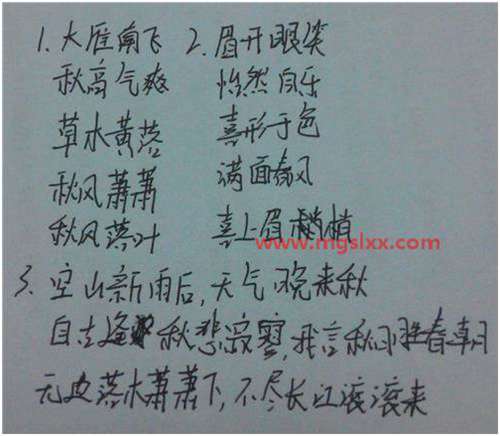 1. 大雁南飞 2. 眉开眼笑
秋高气爽 怡然自乐
草木黄落 喜形于色
秋风萧萧 满面春风
秋风落叶 喜上眉梢
www.mgslxx.com
3. 空山新雨后,天气晚来秋
自古逢秋悲寂寥,我言秋日胜春朝
无边落木萧萧下,不尽长江滚滚来